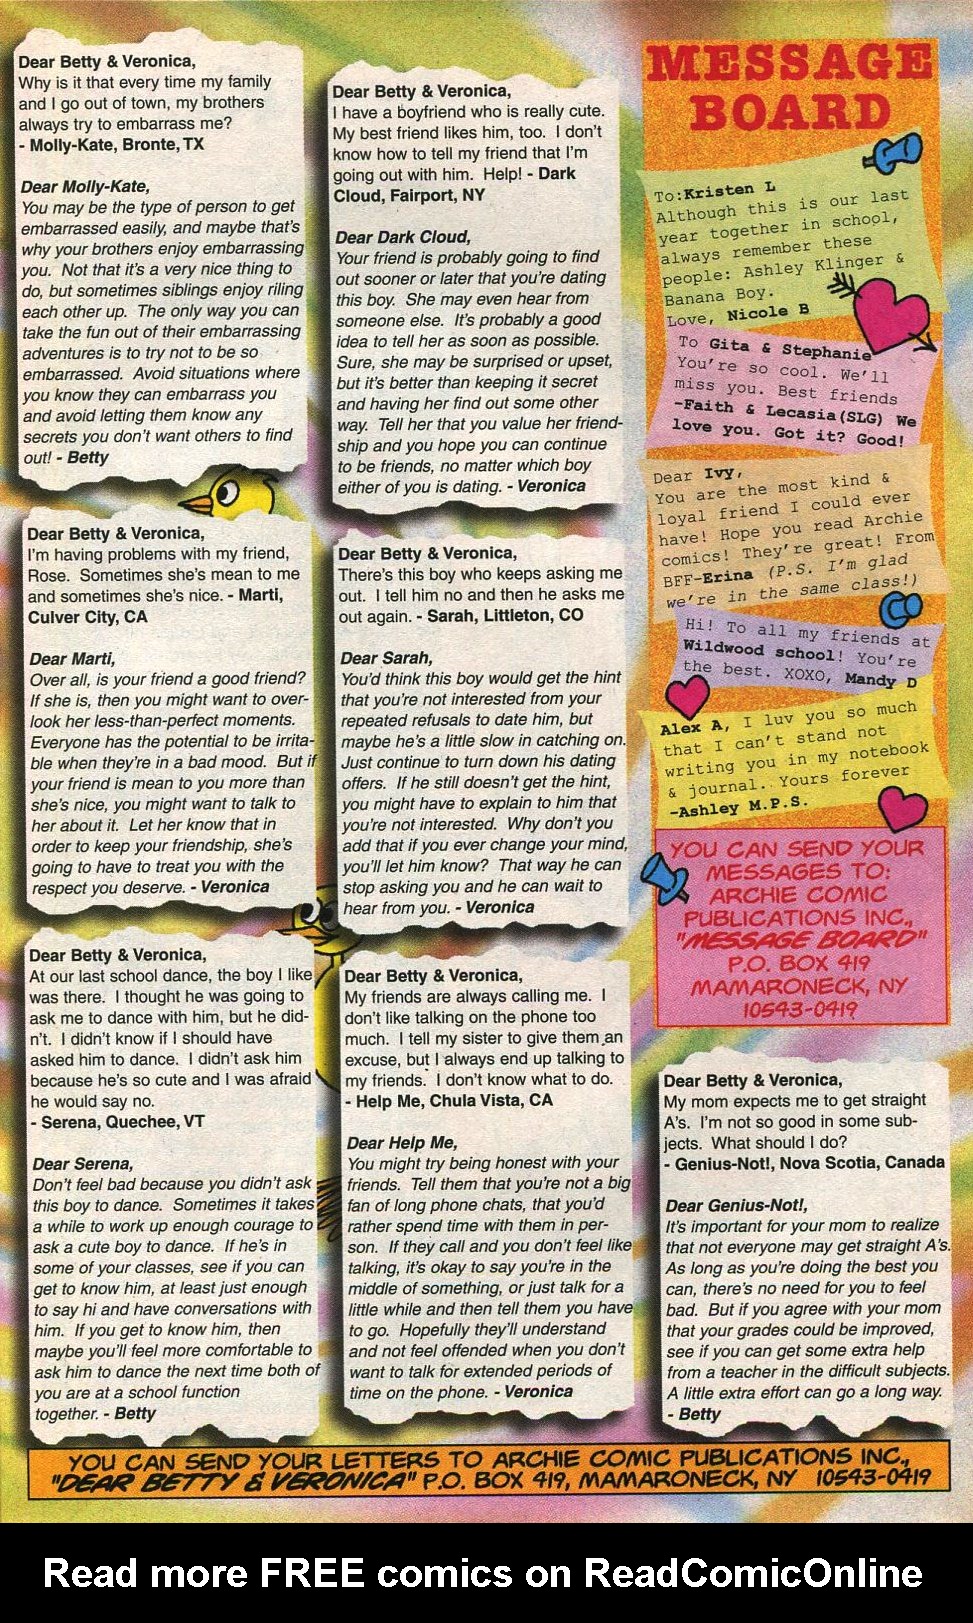 Dear Betty & Veronica,
Why is it that every time my family
and I go out of town, my brothers
always try to embarrass me?
- Molly-Kate, Bronte, TX
Dear Molly-Kate,
You may be the type of person to get
embarrassed easily, and maybe that's
why your brothers enjoy embarrassing
you. Not that it's a very nice thing to
do, but sometimes siblings enjoy riling
each other up. The only way you can
take the fun out of their embarrassing
adventures is to try not to be so
embarrassed. Avoid situations where
you know they can embarrass you
and avoid letting them know any
secrets you don't want others to find
out! - Betty
Dear Betty & Veronica,
I'm having problems with my friend,
Rose. Sometimes she's mean to me
and sometimes she's nice. - Marti,
Culver City, CA
Dear Marti,
Over all, is your friend a good friend?
If she is, then you might want to over-
look her less-than-perfect moments.
Everyone has the potential to be irrita-
ble when they're in a bad mood. But if
your friend is mean to you more than
she's nice, you might want to talk to
her about it. Let her know that in
order to keep your friendship, she's
going to have to treat you with the
respect you deserve. - Veronica
Dear Betty & Veronica,
At our last school dance, the boy I like
was there. I thought he was going to
ask me to dance with him, but he did-
n't. I didn't know if I should have
asked him to dance. I didn't ask him
because he's so cute and I was afraid
he would say no.
- Serena, Quechee, VT
Dear Serena,
Don't feel bad because you didn't ask
this boy to dance. Sometimes it takes
a while to work up enough courage to
ask a cute boy to dance. If he's in
some of your classes, see if you can
get to know him, at least just enough
to say hi and have conversations with
him. If you get to know him, then
maybe you'll feel more comfortable to
ask him to dance the next time both of
you are at a school function
together. - Betty
Dear Betty & Veronica,
I have a boyfriend who is really cute.
My best friend likes him, too. I don't
know how to tell my friend that I'm
going out with him. Help! - Dark
Cloud, Fairport, NY
Dear Dark Cloud,
Your friend is probably going to find
out sooner or later that you're dating
this boy. She may even hear from
someone else. It's probably a good
idea to tell her as soon as possible.
Sure, she may be surprised or upset,
but it's better than keeping it secret
and having her find out some other
way. Tell her that you value her friend-
ship and you hope you can continue
to be friends, no matter which boy
either of you is dating. - Veronica
Dear Betty & Veronica,
There's this boy who keeps asking me
out. I tell him no and then he asks me
out again. - Sarah, Littleton, CO
Dear Sarah,
You'd think this boy would get the hint
that you're not interested from your
repeated refusals to date him, but
maybe he's a little slow in catching on.
Just continue to turn down his dating
offers. If he still doesn't get the hint,
you might have to explain to him that
you're not interested. Why don't you
add that if you ever change your mind,
you'll let him know? That way he can
stop asking you and he can wait to
hear from you. - Veronica
Dear Betty & Veronica,
My friends are always calling me. I
don't like talking on the phone too
much. I tell my sister to give them an
excuse, but I always end up talking to
my friends. I don't know what to do.
- Help Me, Chula Vista, CA
Dear Help Me,
You might try being honest with your
friends. Tell them that you're not a big
fan of long phone chats, that you'd
rather spend time with them in per-
son. If they call and you don't feel like
talking, it's okay to say you're in the
middle of something, or just talk for a
little while and then tell them you have
to go. Hopefully they'll understand
and not feel offended when you don't
want to talk for extended periods of
time on the phone. - Veronica
MESSAGE
BOARD
To:Kristen L
Although this is our last
year together in school,
always remember these
people: Ashley Klinger &
Banana Boy.
Love, Nicole B
To Gita & Stephanie
You're so cool. We'll
miss you. Best friends
-Faith & Lecasia(SLG) We
love you. Got it? Good!
Dear Ivy,
You are the most kind &
loyal friend I could ever
have! Hope you read Archie
comics! They're great! From
BFF-Erina (P.S. I'm glad
we're in the same class!)
Hi! To all my friends at
Wildwood school! You're
the best. XOXO, Mandy D
Alex A, I luv you so much
that I can't stand not
writing you in my notebook
& journal.. Yours forever
-Ashley M.P.S.
YOU CAN SEND YOUR
MESSAGES TO:
ARCHIE COMIC
PUBLICATIONS INC.,
"MESSAGE BOARD"
P.O. BOX 419
MAMARONECK, NY
10543-0419
Dear Betty & Veronica,
My mom expects me to get straight
A's. I'm not so good in some sub-
jects. What should I do?
- Genius-Not!, Nova Scotia, Canada
Dear Genius-Not!,
It's important for your mom to realize
that not everyone may get straight A's.
As long as you're doing the best you
can, there's no need for you to feel
bad. But if you agree with your mom
that your grades could be improved,
see if you can get some extra help
from a teacher in the difficult subjects.
A little extra effort can go a long way.
- Betty
YOU CAN SEND YOUR LETTERS TO ARCHIE COMIC PUBLICATIONS INC.,
"DEAR BETTY & VERONICA" P.O. BOX 419, MAMARONECK, NY 10543-0419
Read more FREE comics on ReadComicOnline